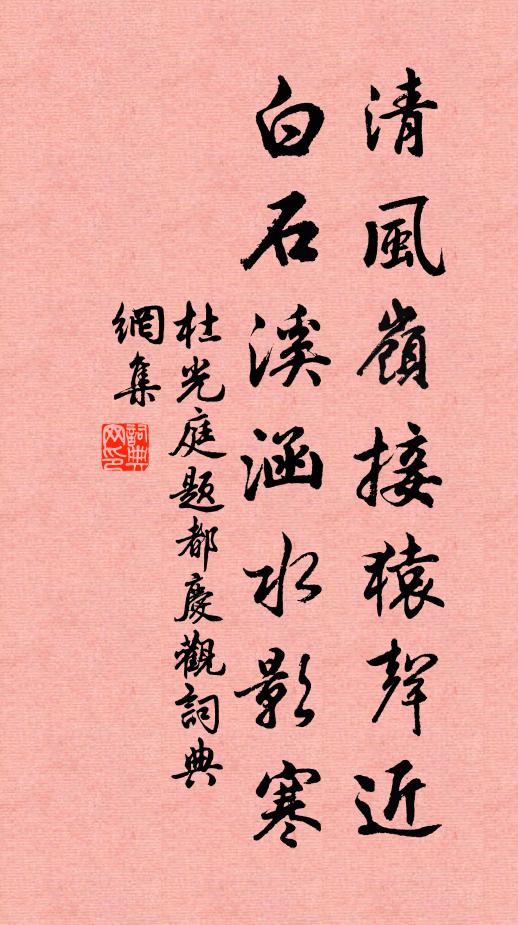 清風嶺接猿聲近
白石溪涵水影寒
杜光庭題都慶觀詞典
網集
詞典網印